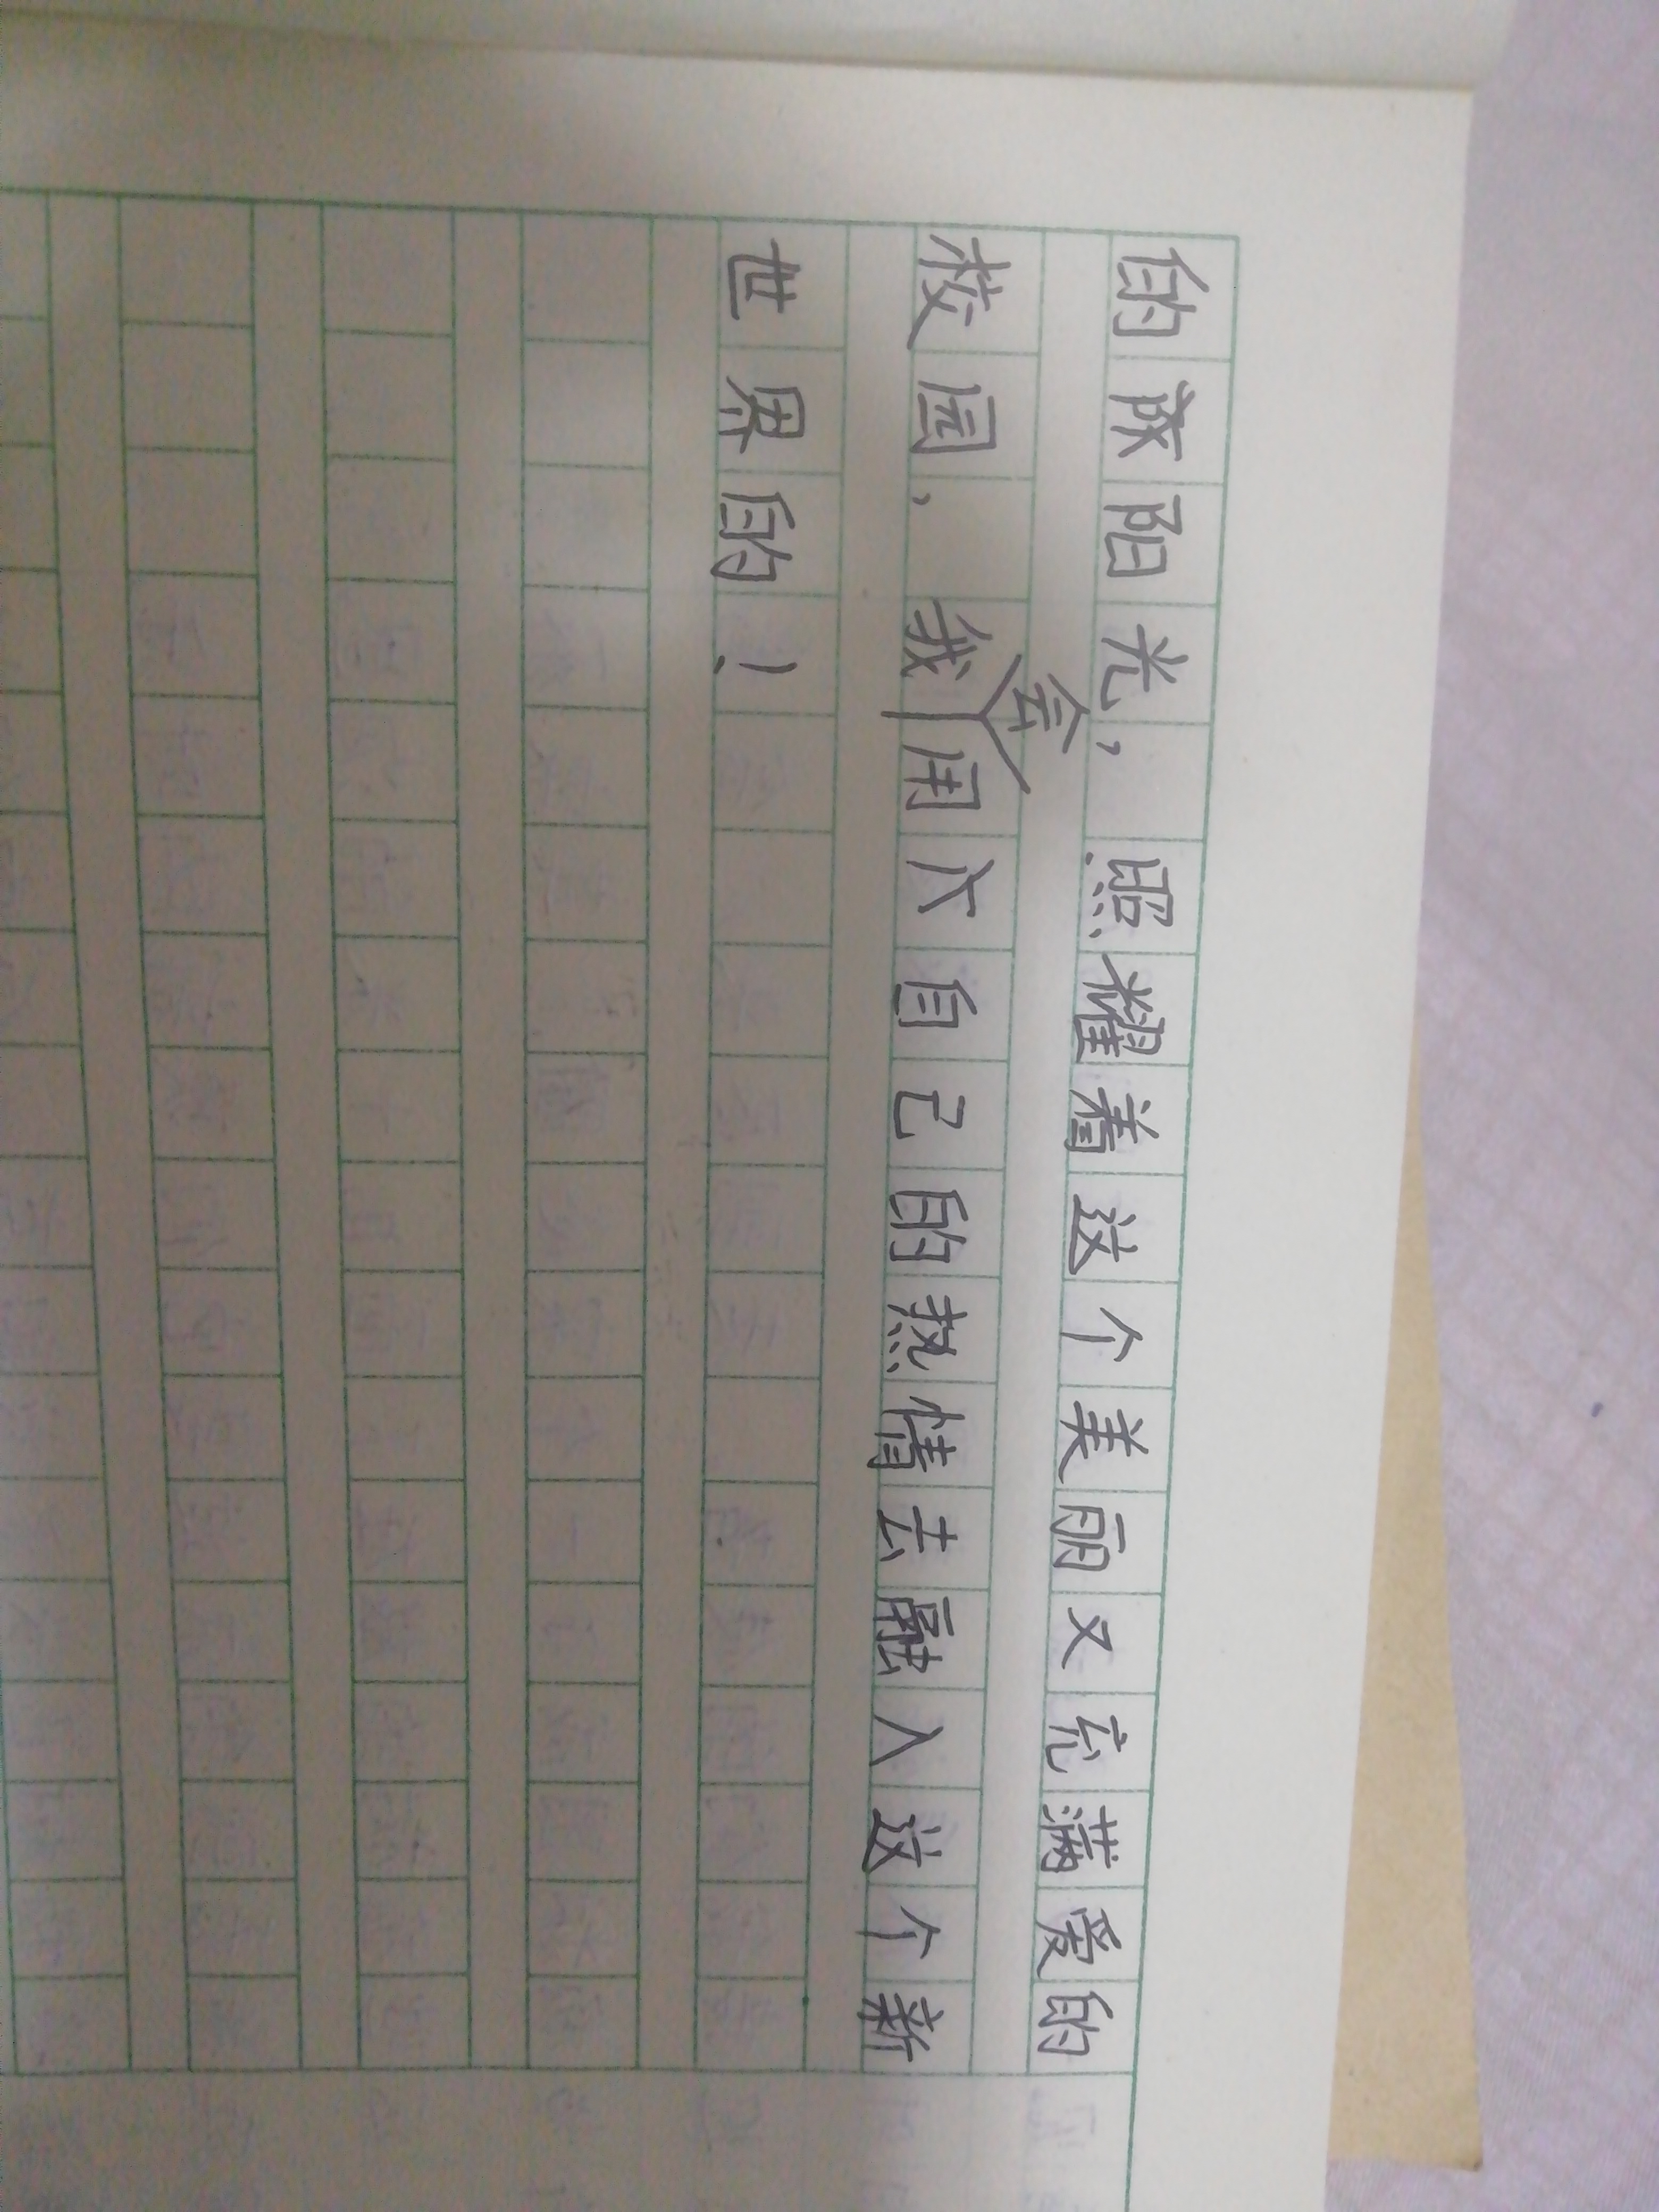 的阳光，照耀着这个美丽又充满爱的
校园，我会用自己的热情去融入这个新
世界的！